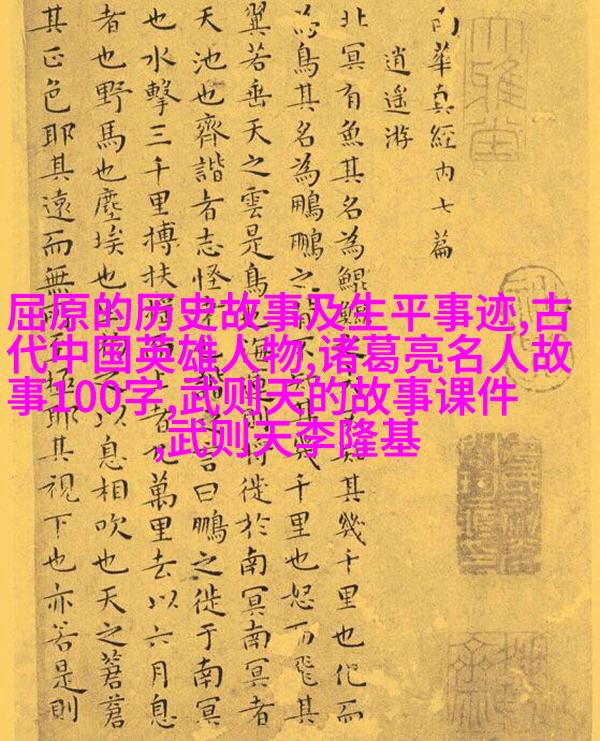 南華真經内七篇
逍遥游
北冥有魚其名為鯤其幾千里也化而
為鳥其名為鵬鵬之背不知其幾千里也怒而飛其
翼若垂天之雲是鳥也海運則將徙於南冥南冥者
天池也齊諧者志怪諧之言曰鵬之徙于南冥
也水擊三千里搏扶上者九萬里去以六月息
者也野馬也塵埃也之以息相吹也天之蒼蒼
其正色耶其遠而無至極耶其視下也亦若是則
屈原的历史故事及生平事迹,古
代中国英雄人物,诸葛亮名人故
事100字,武则天的故事课件
,武则天李隆基